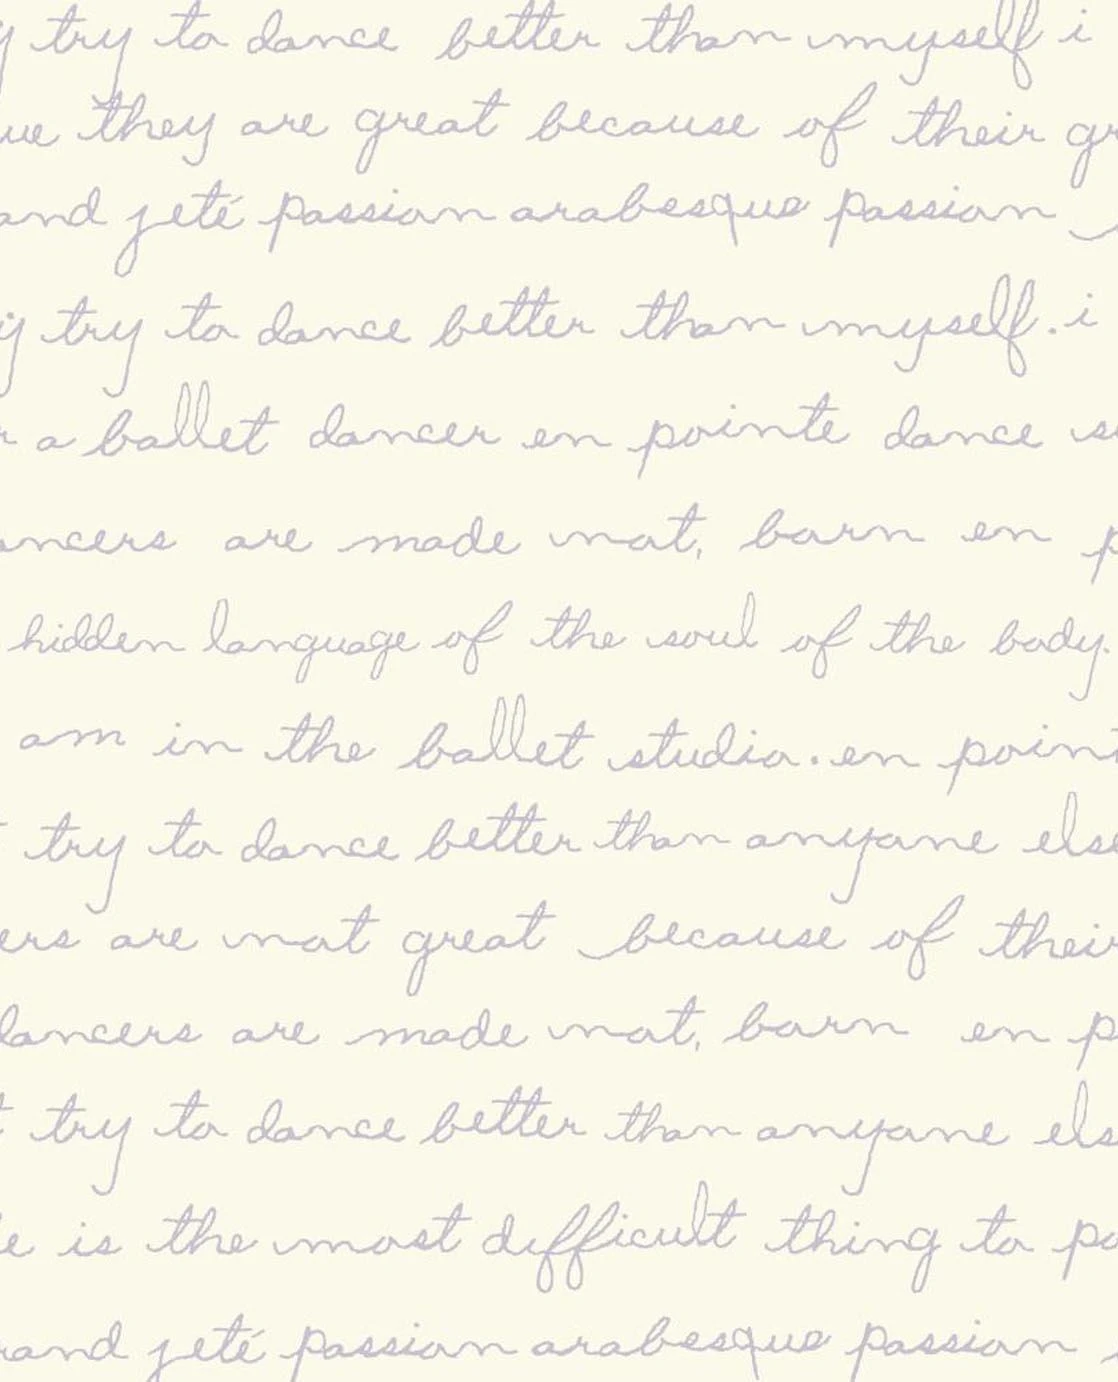 y try to dance better than myself i
ue they are great because of their gr
and jeté passion arabesque passion
y try to dance better than myself. i
r a ballet dancer en pointe dance s
ancers are made not, born en p
hidden language of the soul of the body.
am in the ballet studio. en point
t try to dance better than anyone else
ers are not great because of their
dancers are made not, born en p
t try to dance better than anyone els
e is the most difficult thing to po
rand jeté passion arabesque passion